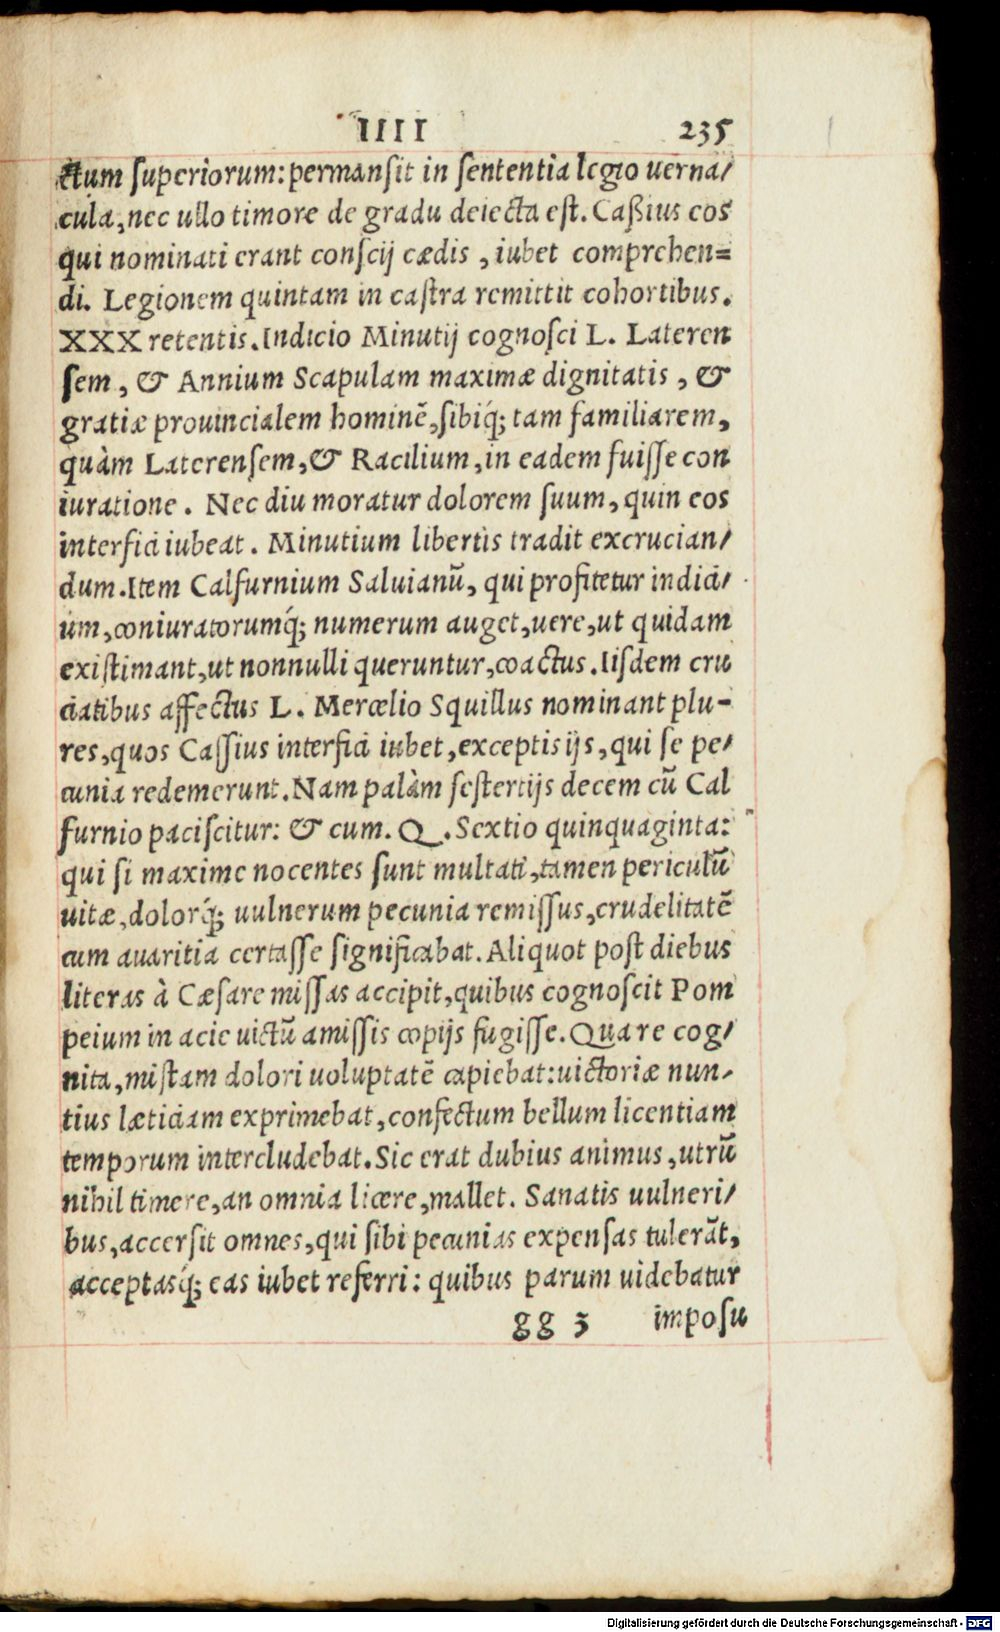 IIII 235
ctum superiorum: permansit in sententia legio uerna/
cula, nec ullo timore de gradu deiecta est. Caßius cos
qui nominati erant conscij cædis, iubet comprehen=
di. Legionem quintam in castra remittit cohortibus.
XXX retentis. Indicio Minutij cognosci L. Lateren
sem, & Annium Scapulam maximæ dignitatis, &
gratiæ prouincialem hominē, sibiq́; tam familiarem,
quàm Laterensem, & Racilium, in eadem fuisse con
iuratione. Nec diu moratur dolorem suum, quin eos
interfici iubeat. Minutium libertis tradit excrucian/
dum. Item Calfurnium Saluianū, qui profitetur indici/
um, coniuratorumq́; numerum auget, uere, ut quidam
existimant, ut nonnulli queruntur, coactus. Iisdem cru
ciatibus affectus L. Mercelio Squillus nominant plu-
res, quos Cassius interfici iubet, exceptis ijs, qui se pe/
cunia redemerunt. Nam palàm sestertijs decem cū Cal
furnio paciscitur: & cum. Q. Sextio quinquaginta:
qui si maxime nocentes sunt multati, tamen periculū
uitæ, dolorq́; uulnerum pecunia remissus, crudelitatē
cum auaritia certasse significabat. Aliquot post diebus
literas à Cæsare missas accipit, quibus cognoscit Pom
peium in acie uictū amissis copijs fugisse. Quare cog/
nita, mistam dolori uoluptatē capiebat: uictoriæ nun/
tius læticiam exprimebat, confectum bellum licentiam
temporum intercludebat. Sic erat dubius animus, utrū
nihil timere, an omnia licere, mallet. Sanatis uulneri/
bus, accersit omnes, qui sibi pecunias expensas tulerāt,
acceptasq́; eas iubet referri: quibus parum uidebatur
gg 3 imposu
Digitalisierung gefördert durch die Deutsche Forschungsgemeinschaft - DFG